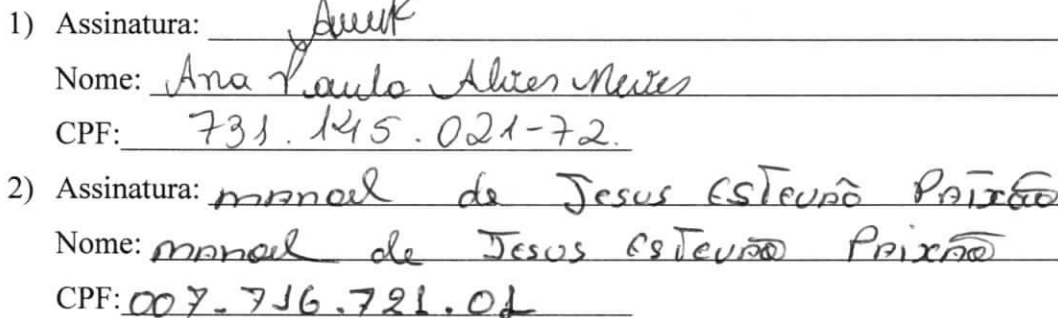 1) Assinatura:
Nome: Ana Paula Alves Neves
CPF: 731.145.021-72.
2) Assinatura: manoel de Jesus ESTEVÃO PAIXÃO
Nome: manoel de Jesus ESTEVÃO PAIXÃO
CPF: 007.716.721.01